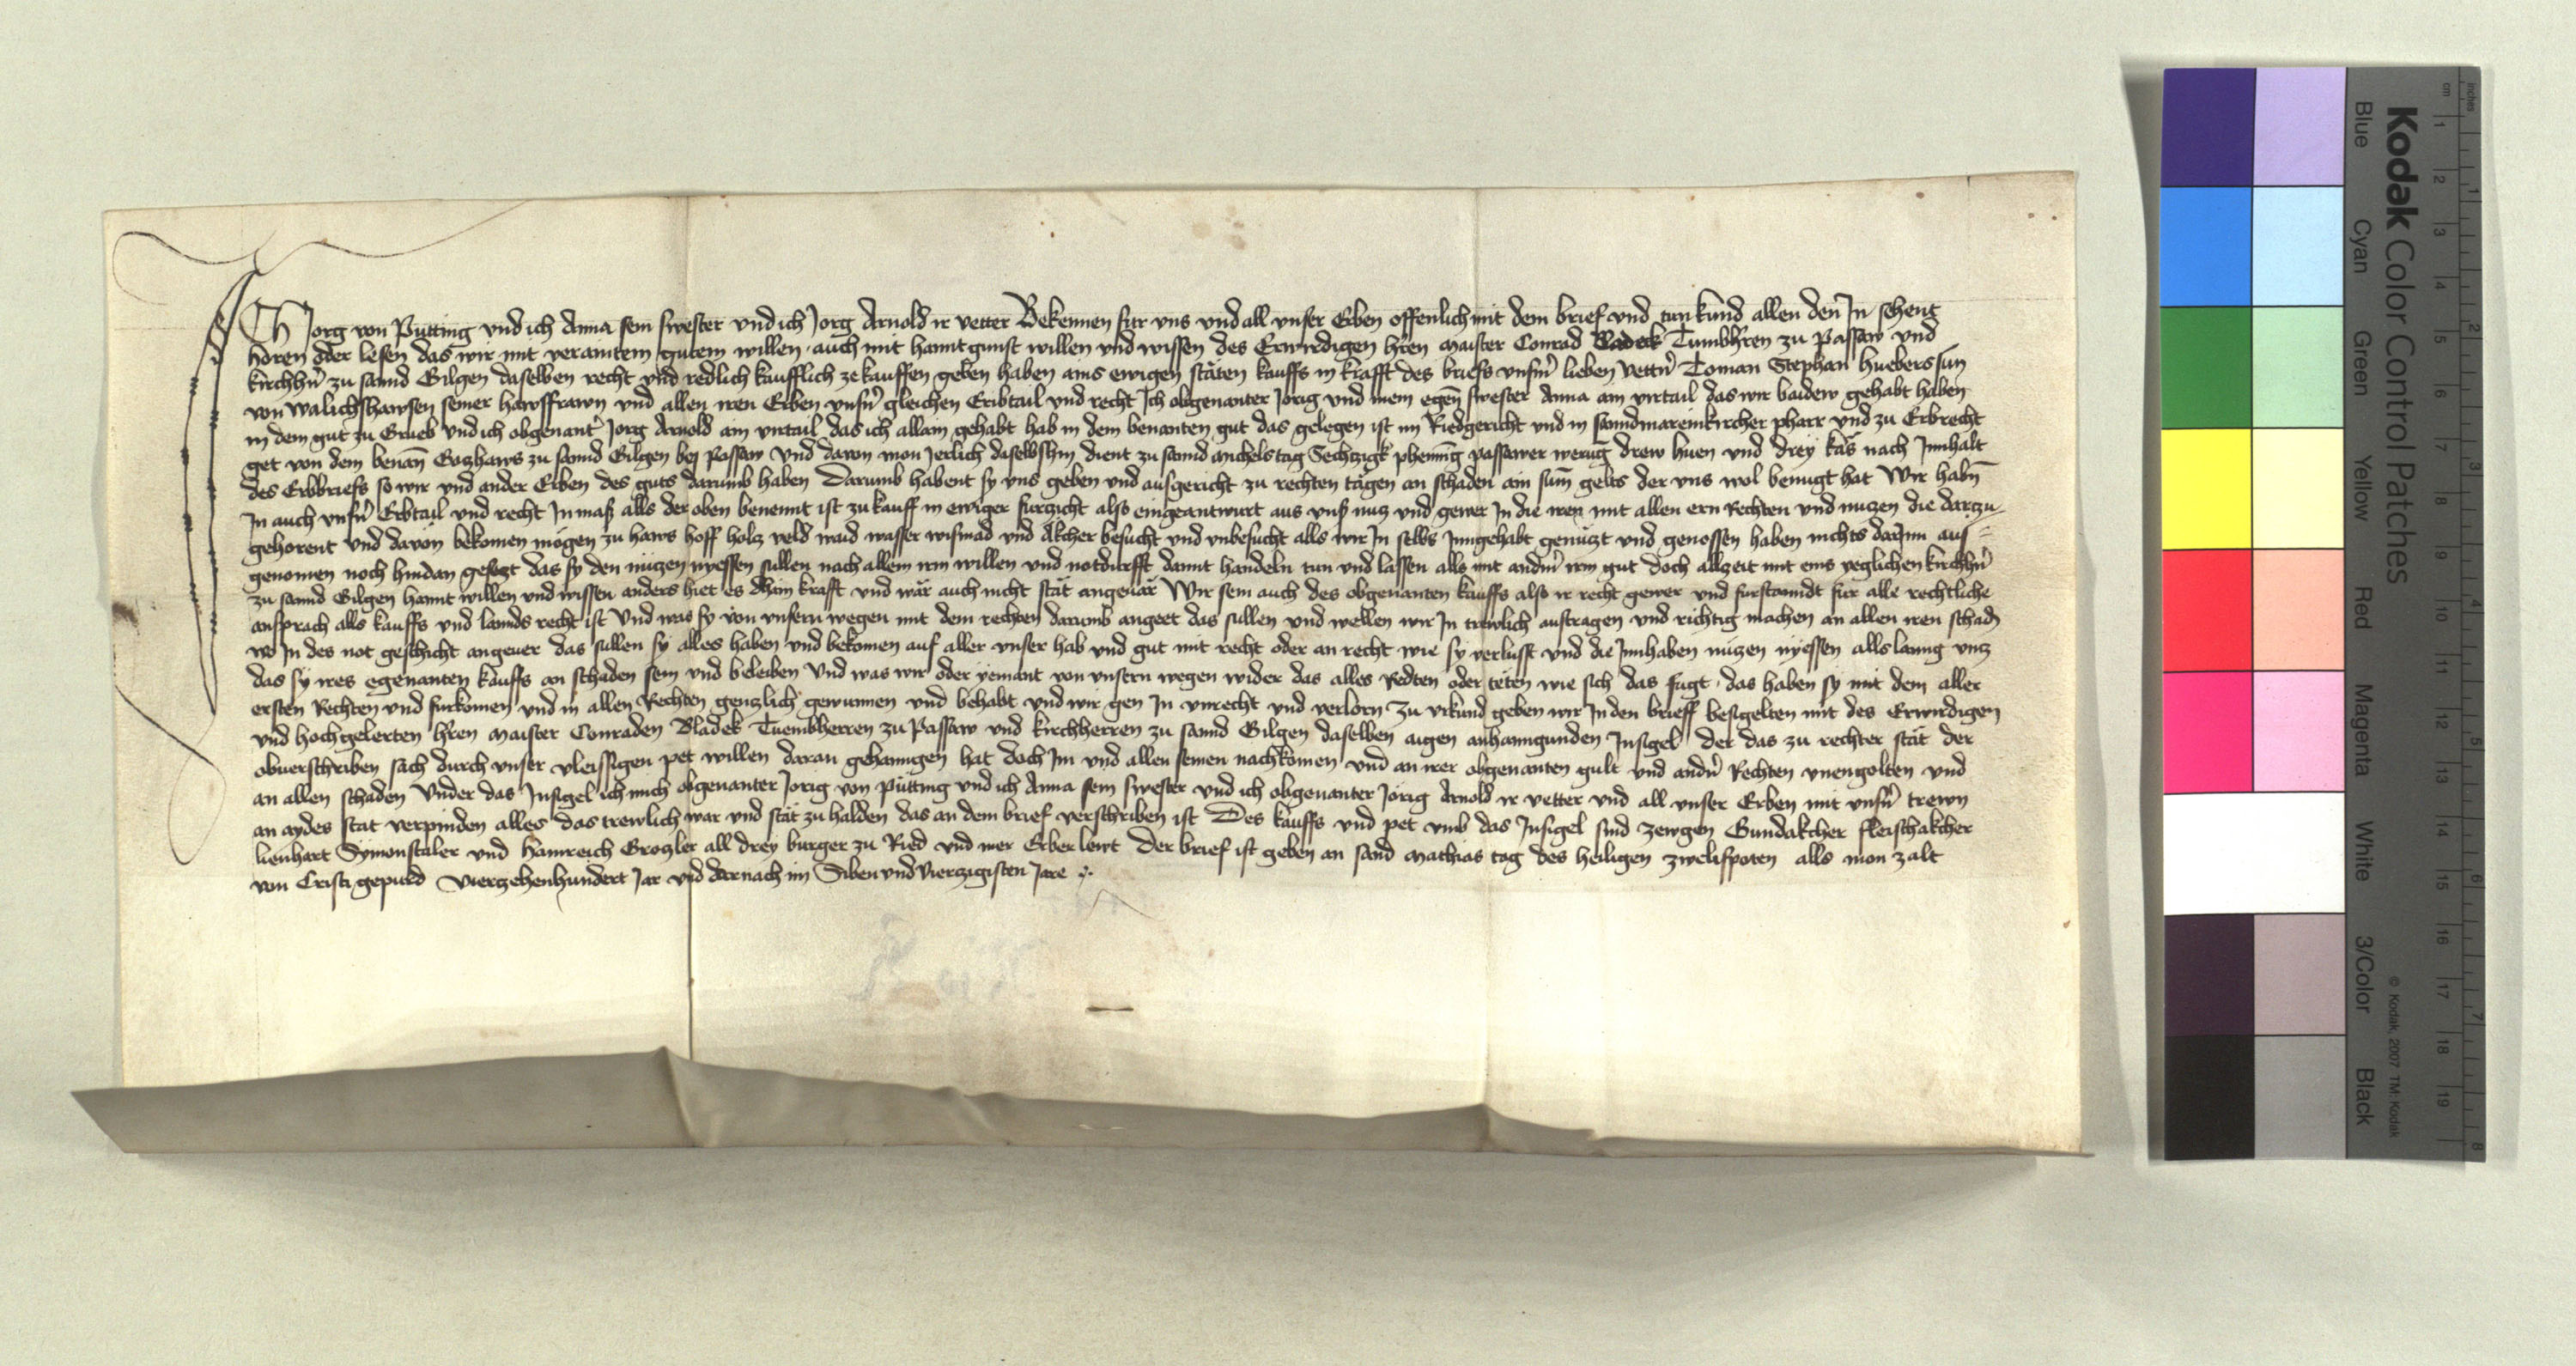 Ich Jorg von Pütting vnd ich Anna sein swester vnd ich Jorg Arnold ir vetter Bekennen für vns vnd all vnser Erben offenlich mit dem brief vnd tun kund allen den In sehent
hören oder lesen das wir mit veraintem gutem willen auch mit hanntgunst willen vnd wissen des Erwirdigen hren maister Conrad Bladek Tumbhren zu Passaw vnd
kirchhn zu sannd Gilgen daselben recht vnd redlich kaufflich ze kauffen geben haben ains ewigen stäten kauffs in krafft des briefs vnsrn lieben vettn Toman Stephan huebers sun
von walichshawsen seiner hawsfrawn vnd allen iren Erben vnsrn gleichen Eribtail vnd recht Ich obgenanter Jörig vnd mein egen swester Anna ain virtail das wir baidew gehabt haben
in dem gut zu Grueb vnd ich obgenant Jorg Arnold ain virtail das ich allain gehabt hab in dem benanten gut das gelegen ist im Riedgericht vnd in sanndmareinkircher pharr vnd zu Erbrecht
get von dem benan Gotzhaws zu sannd Gilgen bey Passaw vnd dauon mon Jerlich daselbshin dient zu sannd michelstag Sechtzigk phening passawer werug drew huen vnd drey käs nach Innhalt
des Erbbriefs so wir vnd ander Erben des guts darumb haben Darumb habent sy vns geben vnd ausgericht zu rechten tägen an schaden ain sum gelts der vns wol benugt hat Wir habn
In auch vnsrn Erbtail vnd recht In mass alls der oben benennt ist zu kauff in ewiger furzicht also eingeantwurt aus vnsr nuz vnd gewer In die iren mit allen ern Rechten vnd nuzen die darzu
gehorent vnd dauon bekomen mögen zu haws hoff holz veld waid wasser wismad vnd Äkcher besucht vnd vnbesucht alls wir In selbs Inngehabt genüzt vnd genossen haben nichts darInn aus=
genomen noch hindan gesezt das sy den nüzen nyessen sullen nach allem irm willen vnd notdurfft damit handeln tun vnd lassen alls mit andrm irm gut doch allzeit mit eins yeglichen kirchhn
zu sannd Gilgen hannt willen vnd wissen anders hiet es dhain krafft vnd wär auch nicht stät angeuär Wir sein auch des obgenanten kauffs also ir recht gewer vnd furstanndt für alle rechtliche
ansprach alls kauffs vnd lannds recht ist Vnd was sy von vnsern wegen mit dem rechten darumb angeet das sullen vnd wellen wir In trewlich austragen vnd richtig machen an allen iren schadn
wo In des not geschicht angeuer das sullen sy alles haben vnd bekomen auf aller vnser hab vnd gut mit recht oder an recht wie sy verlusst vnd die Innhaben nüzen nyessen alls lanng vnz
das sy ires egenanten kauffs an schaden sein vnd beleiben Vnd was wir oder yemant von vnsern wegen wider das alles Redten oder teten wie sich das fugt das haben sy mit dem aller
ersten Rechten vnd furkomen vnd in allen Rechten genzlich gewunnen vnd behabt vnd wir gen In vnrecht vnd verlorn Zu vrkund geben wir In den brieff besigelten mit des Erwirdigen
vnd hochgelerten hren maister Conraden Bladek Tuembherren zu Passaw vnd kirchherren zu sannd Gilgen daselben aigen anhanngunden Insigel der das zu rechter stät der
obuerschriben sach durch vnser vleissigen pet willen daran gehanngen hat doch Im vnd allen seinen nachkomen vnd an irer obgenanten gult vnd andn Rechten vnengolten vnd
an allen schaden Vnder das Insigel ich mich obgenanter Jorig von pütting vnd ich Anna sein swester vnd ich obgenanter Jorig Arnold ir vetter vnd all vnser Erben mit vnsrn trewn
an aydes stat verpinden alles das trewlich war vnd stät zu halden das an dem brief verschriben ist Des kauffs vnd pet vmb das Insigel sind zewgen Gundakcher fleischakcher
lienhart Symonstaler vnd hainreich Grozler all drey burger zu Ried vnd mer Erber lewt Der brief ist geben an sand mathias tag des heiligen zwelifpoten alls mon zalt
von Cristi gepurd vierzehenhundert Jar vnd darnach im Siben vnd Vierzigisten Jare
Kodak Color Control Patches
Blue Cyan Green Yellow Red Magenta White 3/Color Black
© Kodak, 2007 TM: Kodak
cm 1 2 3 4 5 6 7 8 9 10 11 12 13 14 15 16 17 18 19
inches 1 2 3 4 5 6 7 8